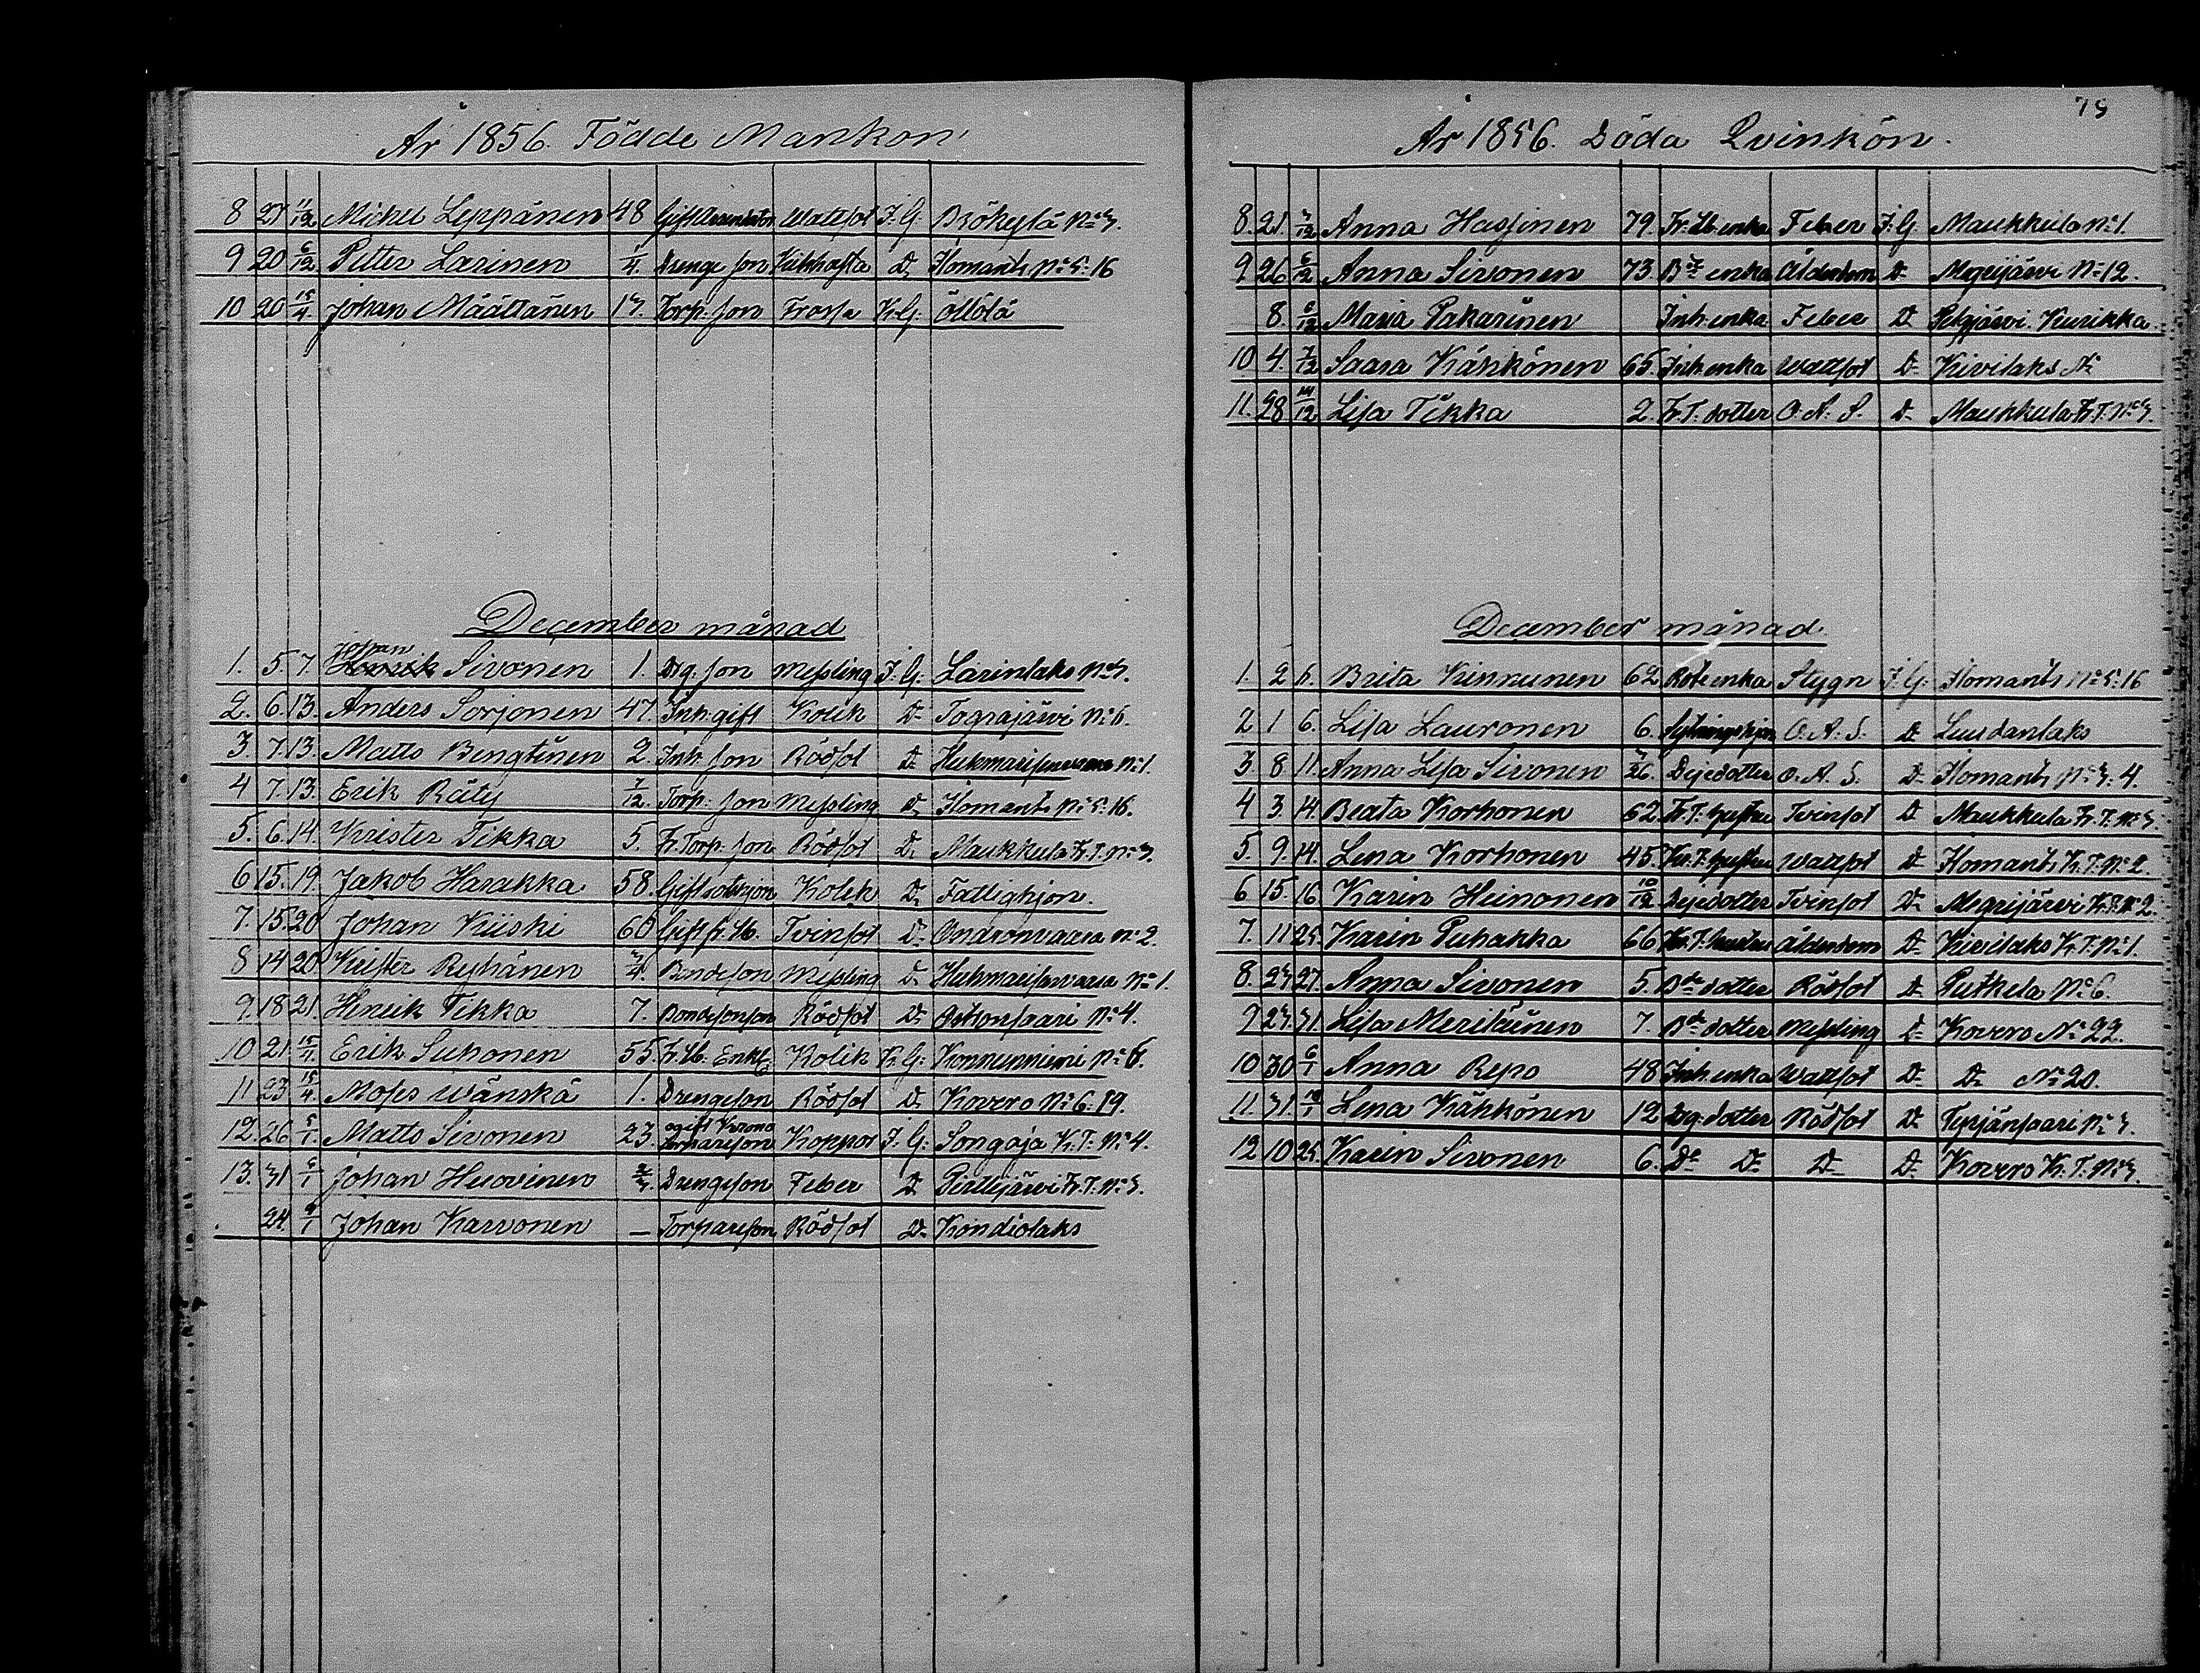 År 1856. Födde Mankön
8 27 11/12 Michel Leppänen 48 Gift Arrendator Wattsot I. G. Brökeylä No 3.
9 20 6/12 Petter Larinen 1/4. Drenge son Kikhosta Do Ilomants No 5: 16
10 20 15/4. Johan Määttänen 17. Torp. son Frossa Kr. G. Öllölä
December månad
1. 5. 7. Johan Sivonen 1. Drg. son Messling I. G. Larinlaks No 3.
2. 6. 13 Anders Sorjonen 47. Inh. gift Kolik Do Tograjärvi No 6.
3. 7. 13. Matts Bengtinen 2. Inh. son Rödsot Do No 1.
4 7. 13. Erik Räty 7/12. Torp. son Messling Do Ilomants No 5: 16.
5. 6. 14. Krister Tikka 5. Fr. Torp. son Rödsot Do Maukkula Fr. T. No 3.
6 15. 19. Jakob Harakka 58. Gift Kolik Do Fattighjon.
7. 15. 20 Johan Kiiski 60 Gift Tvinsot Do Ondronvaara No 2.
8 14 20 Krister Ryhänen 3/4. Bondeson Messling Do No 1.
9. 18 21. Henrik Tikka 7. Bondesonson Rödsot Do Oskonsaari No 4.
10 21. 15/4. Erik Suhonen 55. Fr. Hb. Enkl. Kolik Kr. G. Konnunniemi No 6.
11 23 15/4. Moses Wänskä 1. Drengeson Rödsot Do Kovero No 6: 19.
12. 26 5/1. Matts Sivonen 23. ogift Krono Torpareson Koppor I. G: Songaja Kr. T. No 4.
13. 31 6/1 Johan Huovinen 2/3. Drengeson Feber Do Pirttijärvi Fr. T. No 3.
24 9/1 Johan Karvonen — Torpareson Rödsot Do Kondiolaks
78
År 1856. Döda Qvinkön.
8. 21. 3/12 Anna Hassinen 79. Fr. Hb enka Feber I. G. Maukkula No 1.
9 26 6/12 Anna Sivonen 73. Bde enka Ålderdom Do Megrijärvi No 12.
8. 6/12 Maria Pakarinen Inh. enka Feber Do Pelgjärvi. Kurikka.
10 4. 7/12 Saara Kähkönen 65. Inh. enka Wattsot Do Kivilaks No
11. 28 14/12 Lisa Tikka 2. Fr. T. dotter O. A. S. Do Maukkula Fr. T. No 3.
December månad
1. 2 6. Brita Kinnunen 62 Rote enka Stygn I. G. Ilomants No 5: 16
2 1 6. Lisa Lauronen 6. Sytningshjon O. A. S. Do Luudanlaks
3 8 11. Anna Lisa Sivonen 3/26. Dejedotter O. A. S. Do Ilomants No 3: 4.
4 3. 14. Beata Korhonen 62 Fr. T. hustru Tvinsot Do Maukkula Fr. T. No 3.
5. 9. 14. Lena Korhonen 45. Kr. T. hustru Wattsot Do Ilomants Kr. T. No 2.
6 15. 16. Karin Heinonen 10/12 Dejedotter Tvinsot Do Megrijärvi Kr. T. No 2.
7. 11 25. Karin Puhakka 66 Kr. T. hustru Ålderdom Do Kivilaks Kr. T. No 1.
8. 23 27. Anna Sivonen 5. Bde dotter Rödsot Do Putkela No 6.
9 23 31. Lisa Meriläinen 7. Bde dotter Messling Do Kovero No 22.
10 30 6/1 Anna Repo 48 Inh. enka Wattsot Do Do No 20.
11. 31. Lena Kähkönen 12 Drg. dotter Rödsot Do Tyrjänsaari No 3.
12 10 25. Karin Sivonen 6. Do Do Do Do Kovero Kr. T. No 3.